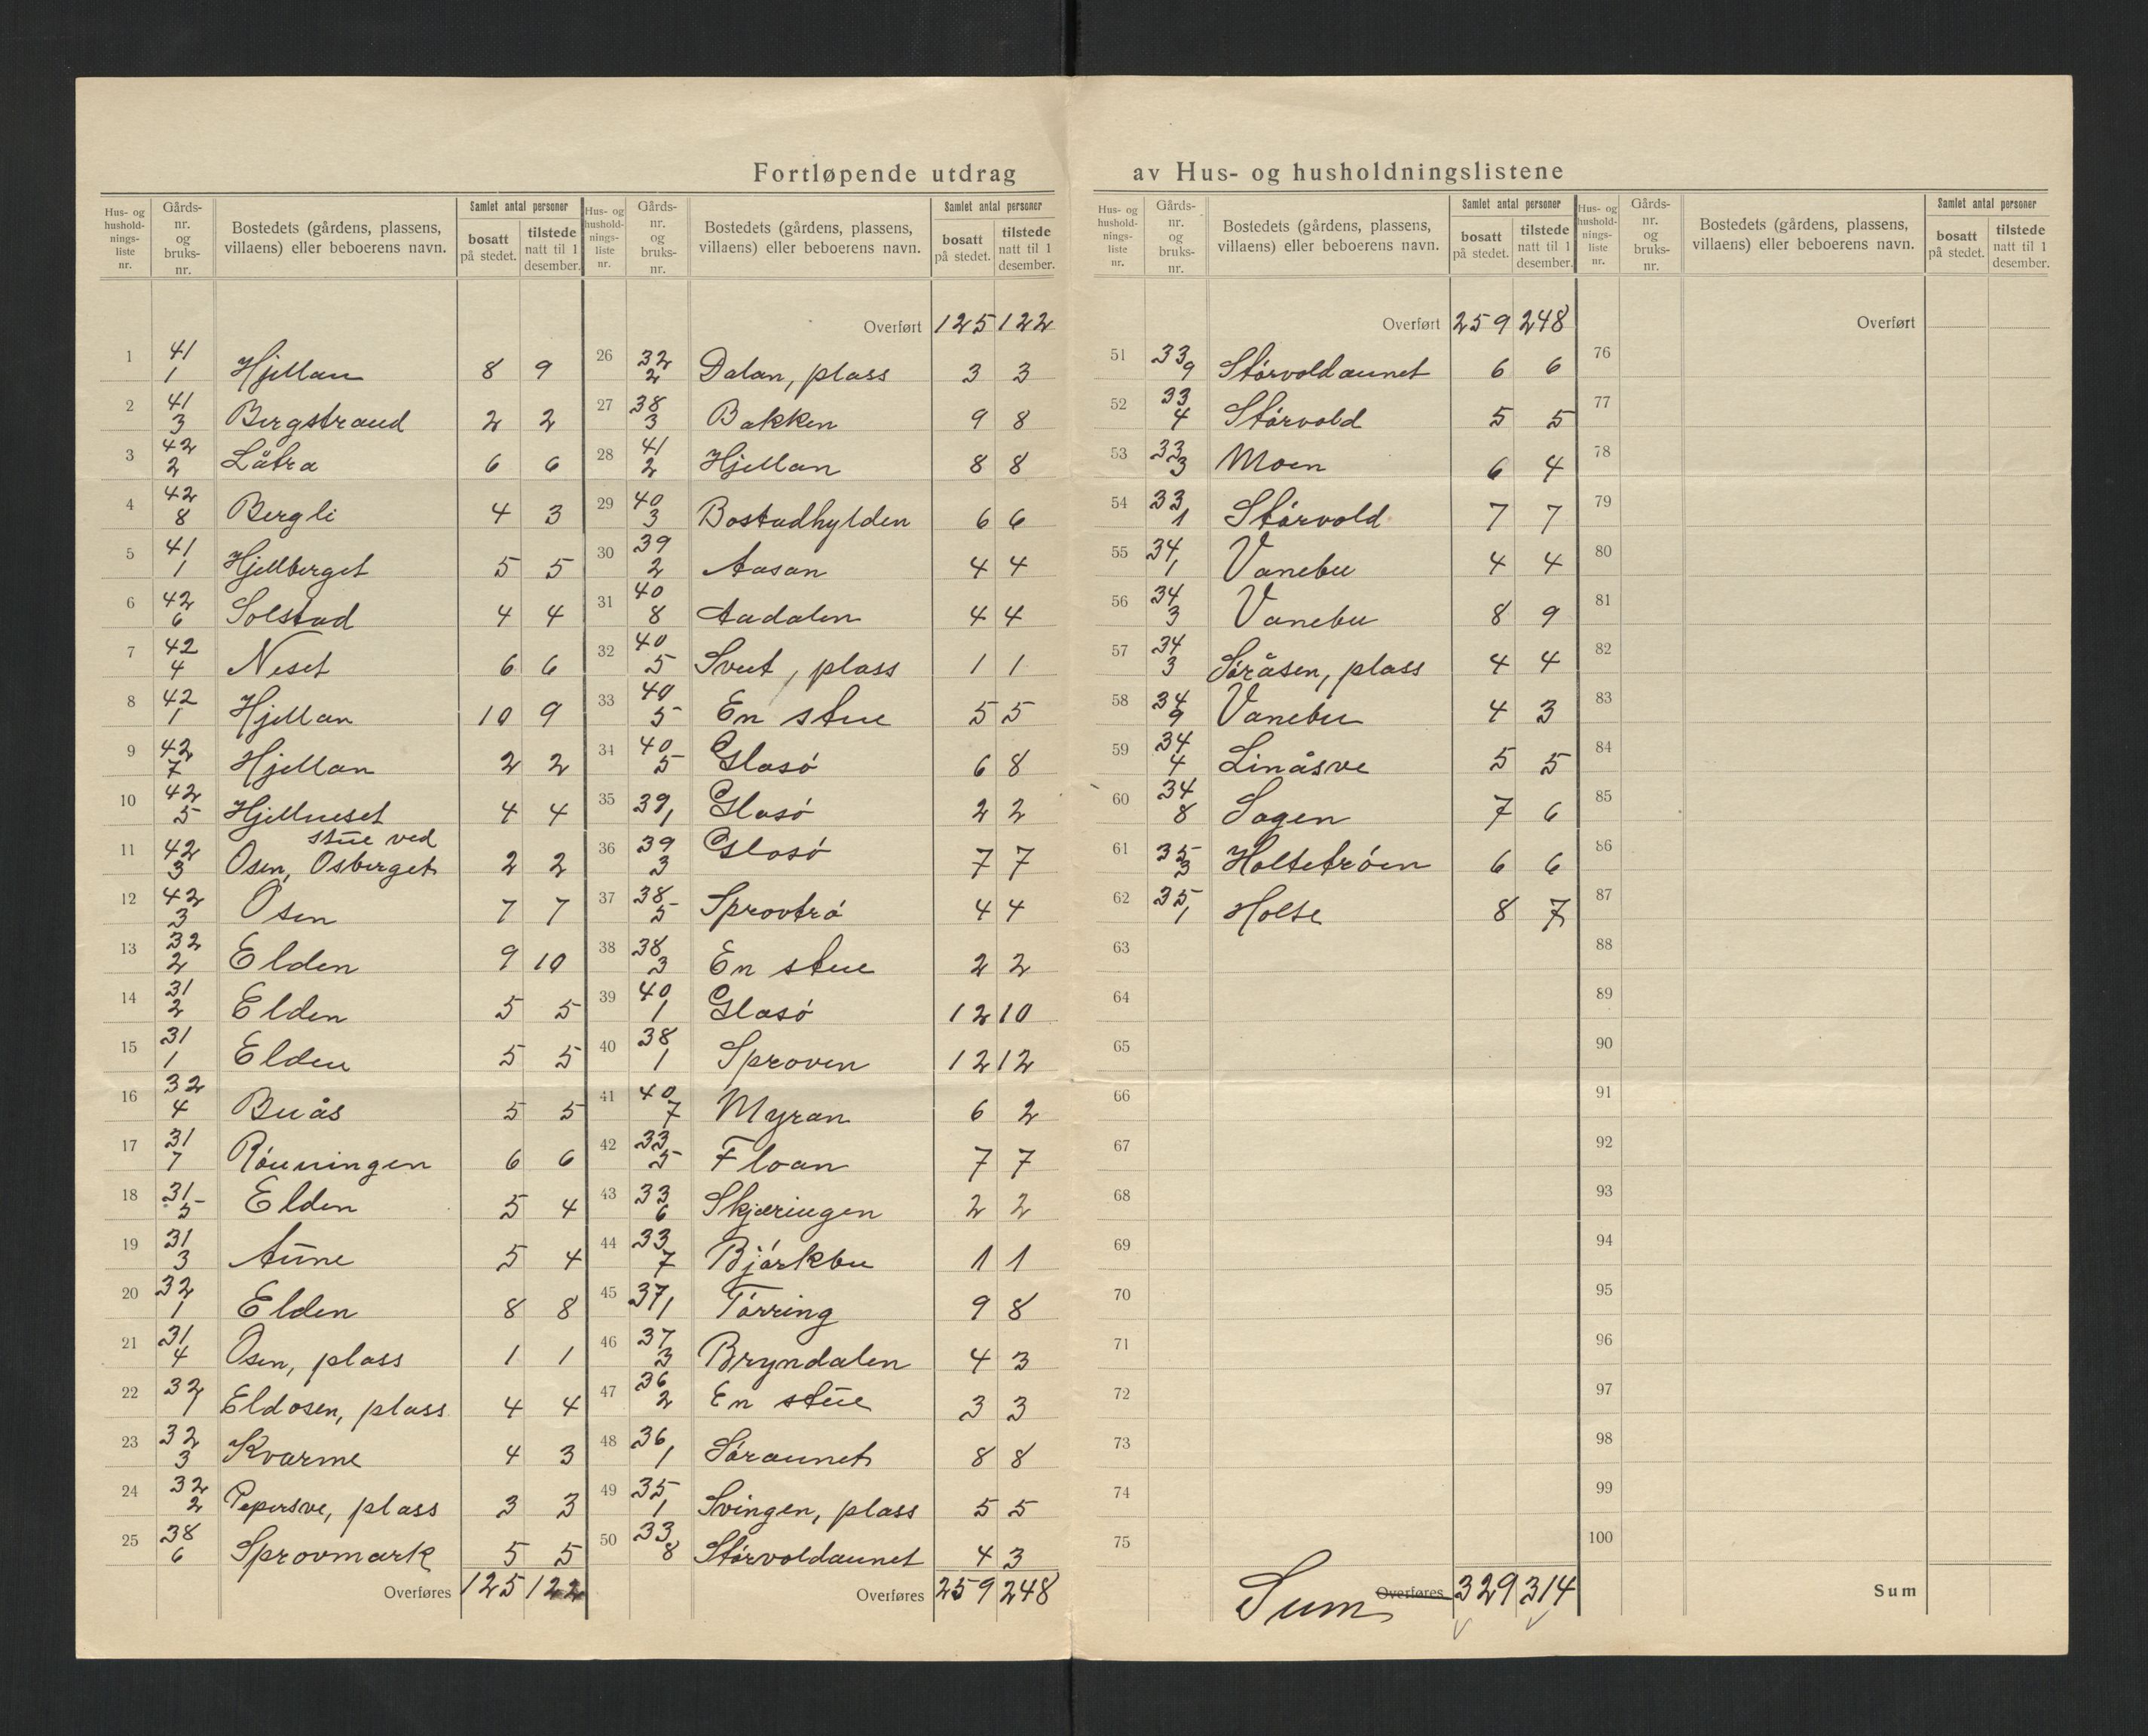 Fortløpende utdrag av Hus- og husholdningslistene
Hus- og hushold-nings-liste nr. | Gårds-nr. og bruks-nr. | Bostedets (gårdens, plassens, villaens) eller beboerens navn. | Samlet antal personer | bosatt på stedet. | tilstede natt til 1 desember.
1 41/1 Hjellan 8 9
2 41/3 Bergstrand 2 2
3 42/2 Låtra 6 6
4 42/8 Bergli 4 3
5 41/1 Hjellberget 5 5
6 42/6 Solstad 4 4
7 42/4 Neset 6 6
8 42/1 Hjellan 10 9
9 42/7 Hjellan 2 2
10 42/5 Hjellneset 4 4
11 42/3 Osen, stue ved Osberget 2 2
12 42/3 Osen 7 7
13 32/2 Elden 9 10
14 31/2 Elden 5 5
15 31/1 Elden 5 5
16 32/4 Buås 5 5
17 31/7 Rónningen 6 6
18 31/5 Elden 5 4
19 31/3 Aune 5 4
20 32/1 Elden 8 8
21 31/4 Osen, plass 1 1
22 32/1 Eldosen, plass 4 4
23 32/3 Kvarme 4 3
24 32/2 Pepersve, plass 3 3
25 38/6 Sprovmark 5 5
Overføres 125 122
Hus- og hushold-nings-liste nr. | Gårds-nr. og bruks-nr. | Bostedets (gårdens, plassens, villaens) eller beboerens navn. | Samlet antal personer | bosatt på stedet. | tilstede natt til 1 desember.
Overført 125 122
26 32/2 Dalan, plass 3 3
27 38/3 Bakken 9 8
28 41/2 Hjellan 8 8
29 40/3 Bostadhylden 6 6
30 39/2 Aasan 4 4
31 40/8 Aadalen 4 4
32 40/5 Sveet, plass 1 1
33 40/5 En stue 5 5
34 40/5 Glasó 6 8
35 39/1 Glasó 2 2
36 39/3 Glasó 7 7
37 38/5 Sprovtró 4 4
38 38/3 En stue 2 2
39 40/1 Glasó 12 10
40 38/1 Sproven 12 12
41 40/7 Myran 6 2
42 33/5 Floan 7 7
43 33/6 Skjæringen 2 2
44 33/7 Bjórkbu 1 1
45 37/1 Tórring 9 8
46 37/3 Bryndalen 4 3
47 36/2 En stue 3 3
48 36/1 Sóraunet 8 8
49 35/1 Svingen, plass 5 5
50 33/8 Stórvoldaunet 4 3
Overføres 259 248
Hus- og hushold-nings-liste nr. | Gårds-nr. og bruks-nr. | Bostedets (gårdens, plassens, villaens) eller beboerens navn. | Samlet antal personer | bosatt på stedet. | tilstede natt til 1 desember.
Overført 259 248
51 33/9 Stórvoldaunet 6 6
52 33/4 Stórvold 5 5
53 33/3 Moen 6 4
54 33/1 Stórvold 7 7
55 34/1 Vanebu 4 4
56 34/3 Vanebu 8 9
57 34/3 Sóråsen, plass 4 4
58 34/9 Vanebu 4 3
59 34/4 Linåsve 5 5
60 34/8 Sagen 7 6
61 35/3 Holtetróen 6 6
62 35/1 Holte 8 7
63
64
65
66
67
68
69
70
71
72
73
74
75
Sum Overføres 329 314
Hus- og hushold-nings-liste nr. | Gårds-nr. og bruks-nr. | Bostedets (gårdens, plassens, villaens) eller beboerens navn. | Samlet antal personer | bosatt på stedet. | tilstede natt til 1 desember.
Overført
76
77
78
79
80
81
82
83
84
85
86
87
88
89
90
91
92
93
94
95
96
97
98
99
100
Sum